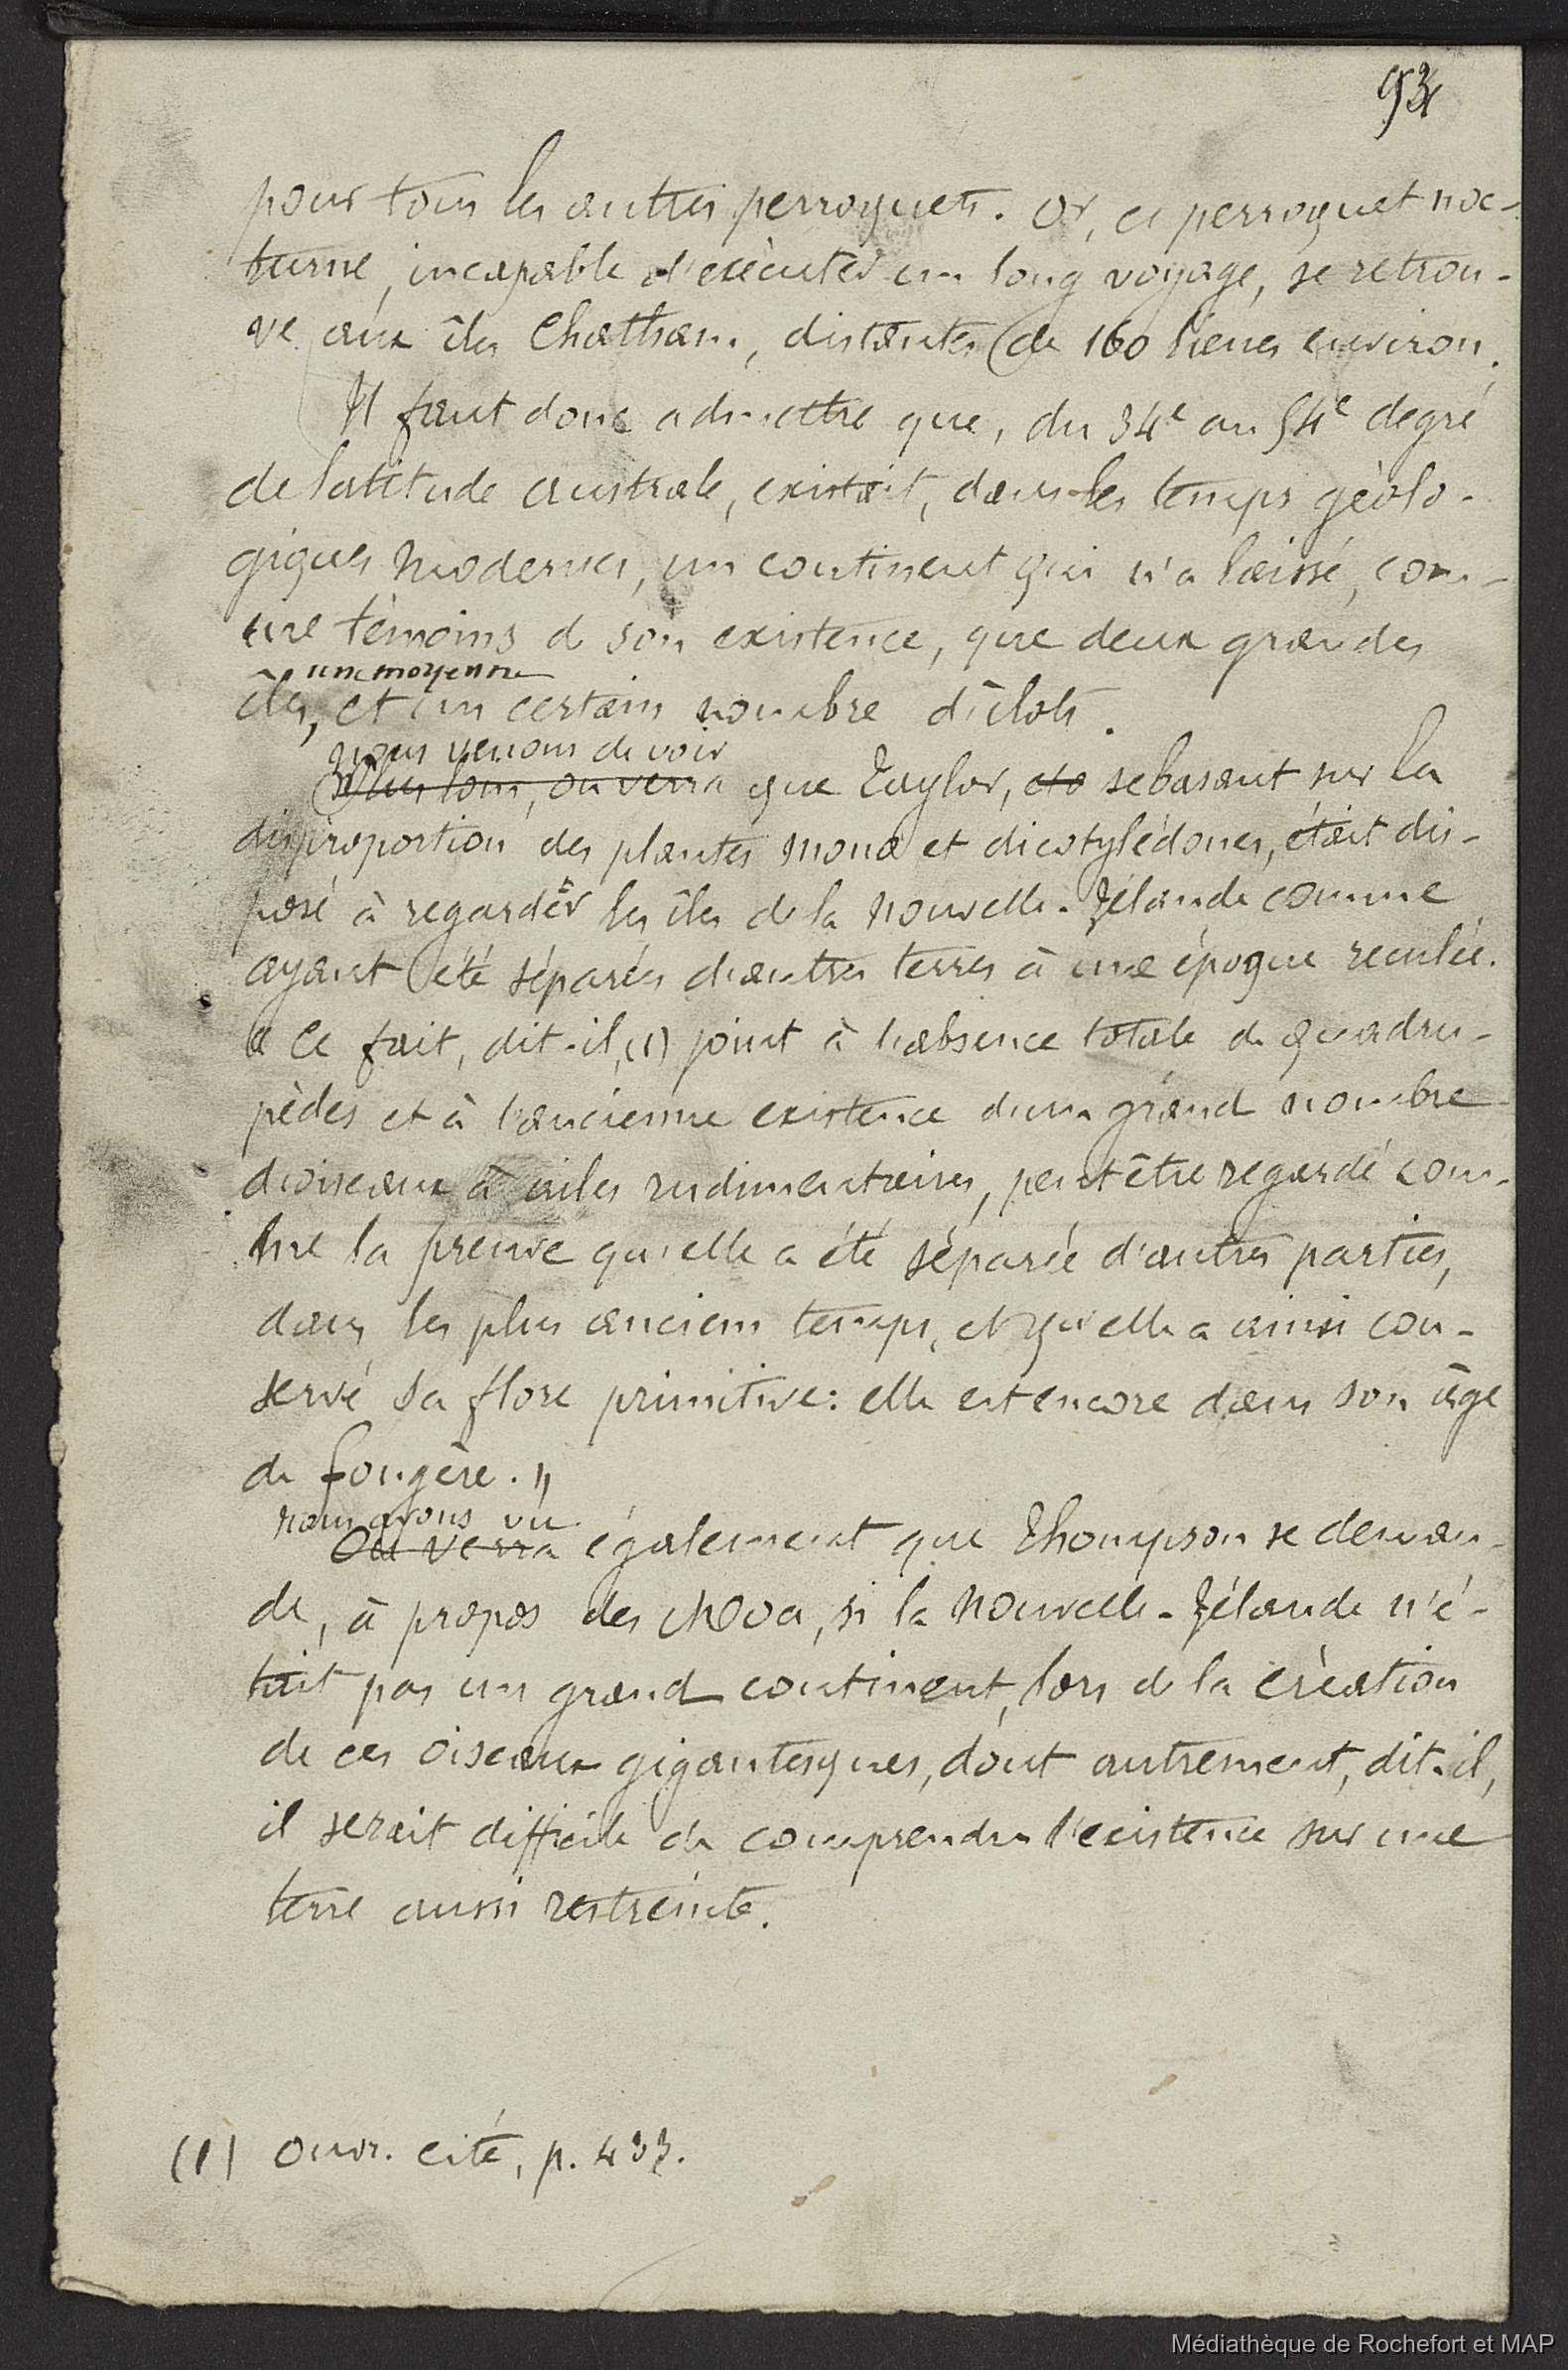 93
pour tous les autres perroquets. Or, ce perroquet noc-
turne, incapable d'exécuter un long voyage, se retrou-
ve aux îles Chatham, distantes de 160 lieues environ.
Il faut donc admettre que, du 34e au 54e degré
de latitude australe, existait, dans les temps géolo-
giques modernes, un continent qui n'a laissé, com-
me témoins de son existence, que deux grandes
une moyenne
îles, et un certain nombre d'îlots.
nous venons de voir
Plus loin, on verra que Taylor, se basant sur la
disproportion des plantes mono et dicotylédones, était dis-
posé à regarder les îles de la Nouvelle-Zélande comme
ayant été séparées d'autres terres à une époque reculée.
« Ce fait, dit-il, (1) joint à l'absence totale de quadru-
pèdes et à l'ancienne existence d'un grand nombre
d'oiseaux à ailes rudimentaires, peut être regardé com-
me la preuve qu'elle a été séparée d'autres parties,
dans les plus anciens temps, et qu'elle a ainsi con-
servé sa flore primitive: elle est encore dans son âge
de fougère. »
nous avons vu
On verra également que Thompson se deman-
de, à propos des Moa, si la Nouvelle-Zélande n'é-
tait pas un grand continent, lors de la création
de ces oiseaux gigantesques, dont autrement, dit-il,
il serait difficile de comprendre l'existence sur une
terre aussi restreinte.
(1) Ouvr. cité, p. 433.
Médiathèque de Rochefort et MAP